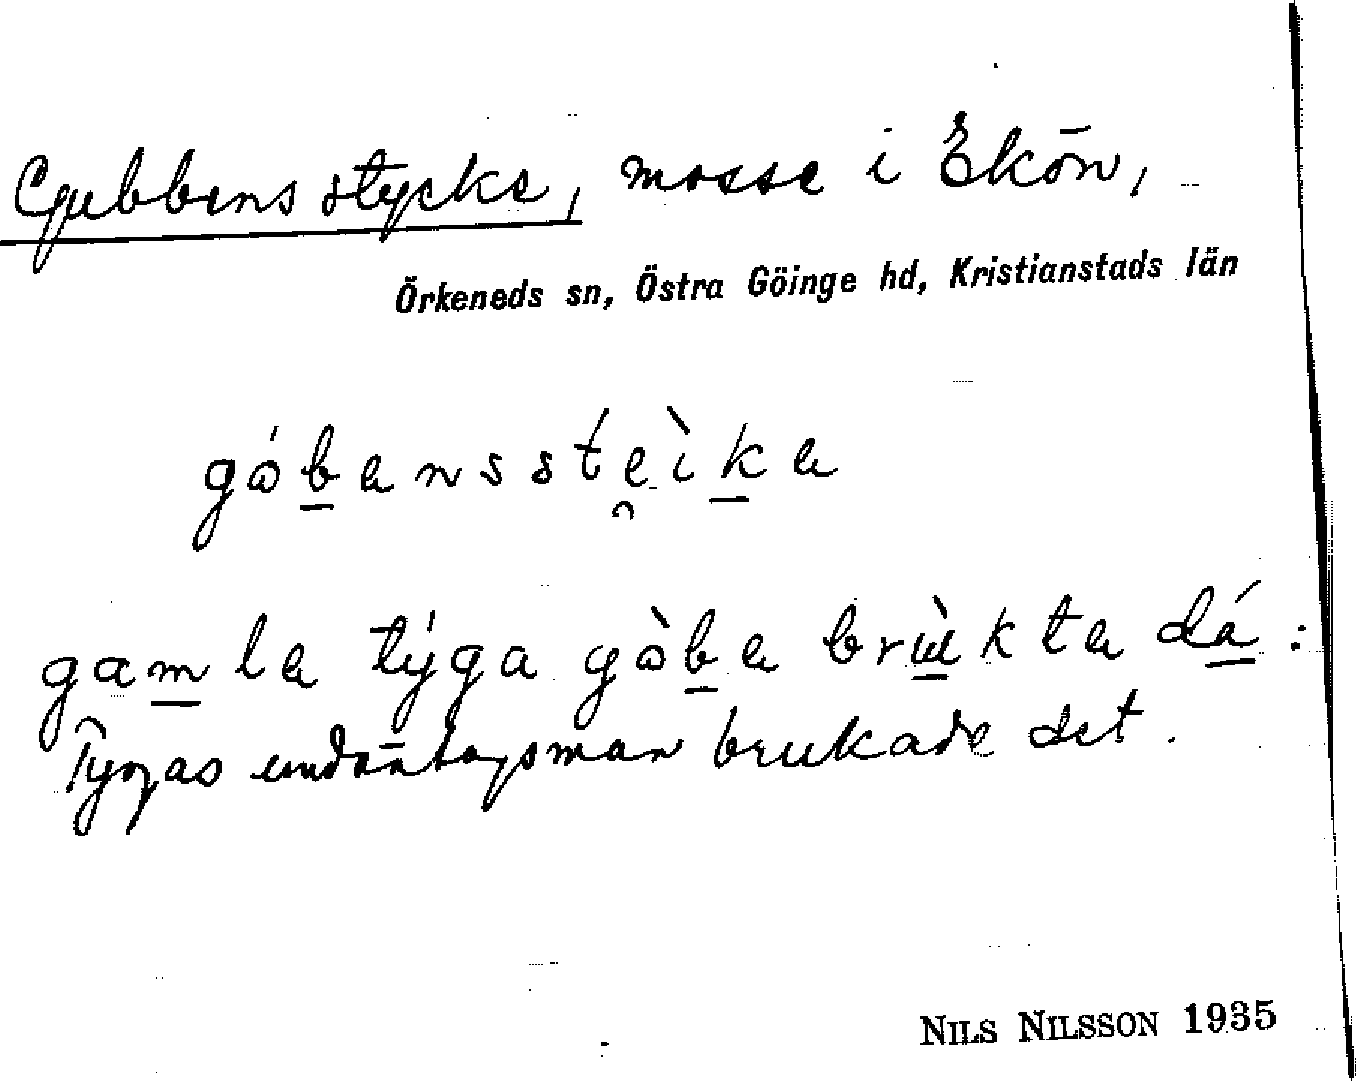 Gubbens stycke, mosse i Ekön,
Örkeneds sn, Östra Göinge hd, Kristianstads län
gòb̲anssteì̯k̲a
gam̲la týga gòb̲a brùkta dá̲:
Tygas undantagsman brukade det.
NILS NILSSON 1935